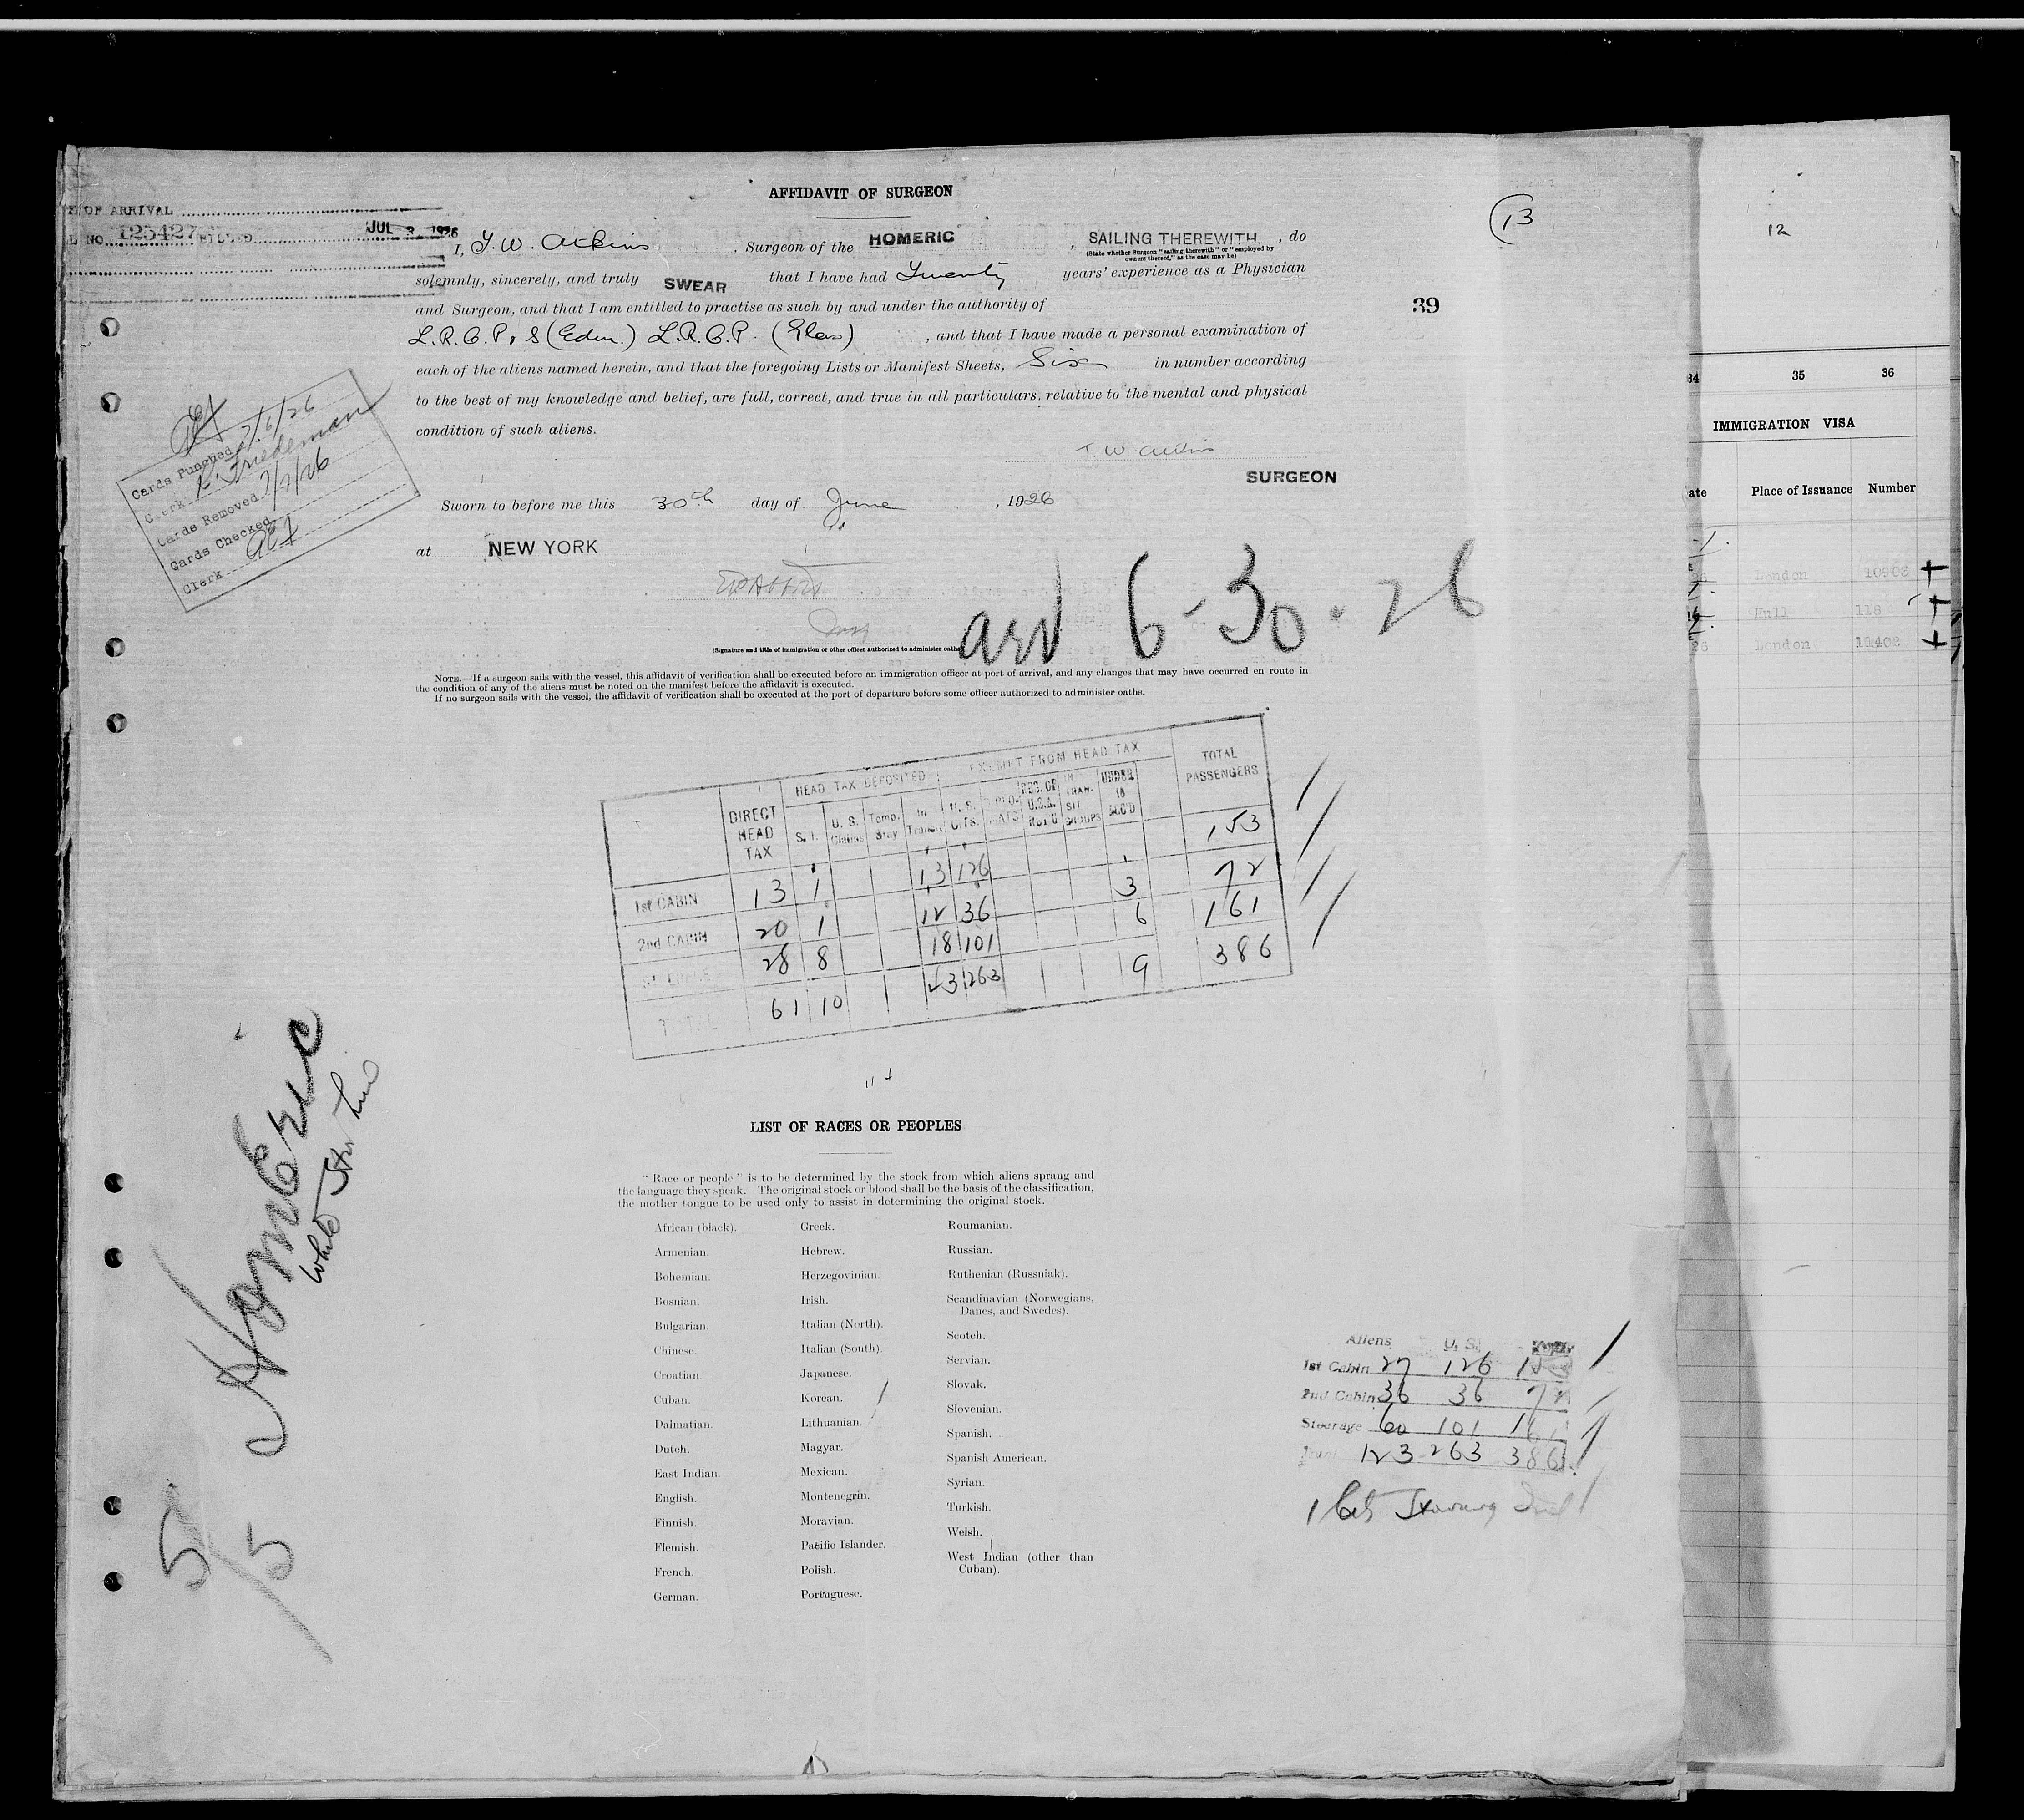 AFFIDAVIT OF SURGEON
13
12
E OF ARRIVAL
L NO. 125427
JUL 3 1926
I, T. W. Atkins, Surgeon of the HOMERIC, SAILING THEREWITH, do
(State whether Surgeon "sailing therewith" or "employed by
owners thereof," as the case may be)
solemnly, sincerely, and truly SWEAR that I have had Twenty years' experience as a Physician
and Surgeon, and that I am entitled to practise as such by and under the authority of
39
L.R.C.P. & S (Edin.) L.R.C.P. (Glas), and that I have made a personal examination of
each of the aliens named herein, and that the foregoing Lists or Manifest Sheets, Six in number according
to the best of my knowledge and belief, are full, correct, and true in all particulars, relative to the mental and physical
condition of such aliens.
T. W. Atkins
SURGEON
Sworn to before me this 30th day of June, 1926
at NEW YORK
arr 6-30-26
(Signature and title of immigration or other officer authorized to administer oaths
NOTE.—If a surgeon sails with the vessel, this affidavit of verification shall be executed before an immigration officer at port of arrival, and any changes that may have occurred en route in
the condition of any of the aliens must be noted on the manifest before the affidavit is executed.
If no surgeon sails with the vessel, the affidavit of verification shall be executed at the port of departure before some officer authorized to administer oaths.
Cards Punched 7/6/26
Clerk K. Friedeman
Cards Removed 7/7/26
Cards Checked
Clerk
34 35 36
IMMIGRATION VISA
ate Place of Issuance Number
London 10903
Hull 118
London 11402
HEAD TAX DEPOSITED EXEMPT FROM HEAD TAX
DIRECT HEAD TAX S. I. U. S. Claims Temp. Stay In Transit U. S. CITS. DIPLOMATS RES. OF U.S.A. RET'G IN TRANSIT GROUPS UNDER 16 ACC'D TOTAL PASSENGERS
1st CABIN 13 1 13 126 153
2nd CABIN 20 1 12 36 3 72
28 8 18 101 6 161
TOTAL 61 10 43 263 9 386
LIST OF RACES OR PEOPLES
"Race or people" is to be determined by the stock from which aliens sprang and
the language they speak. The original stock or blood shall be the basis of the classification,
the mother tongue to be used only to assist in determining the original stock.
African (black).
Armenian.
Bohemian.
Bosnian.
Bulgarian.
Chinese.
Croatian.
Cuban.
Dalmatian.
Dutch.
East Indian.
English.
Finnish.
Flemish.
French.
German.
Greek.
Hebrew.
Herzegovinian.
Irish.
Italian (North).
Italian (South).
Japanese.
Korean.
Lithuanian.
Magyar.
Mexican.
Montenegrin.
Moravian.
Pacific Islander.
Polish.
Portuguese.
Roumanian.
Russian.
Ruthenian (Russniak).
Scandinavian (Norwegians,
Danes, and Swedes).
Scotch.
Servian.
Slovak.
Slovenian.
Spanish.
Spanish American.
Syrian.
Turkish.
Welsh.
West Indian (other than
Cuban).
Homeric
White Star Line
5/5
Aliens U. S.
1st Cabin 27 126 153
2nd Cabin 36 36 72
Steerage 60 101 161
123 263 386